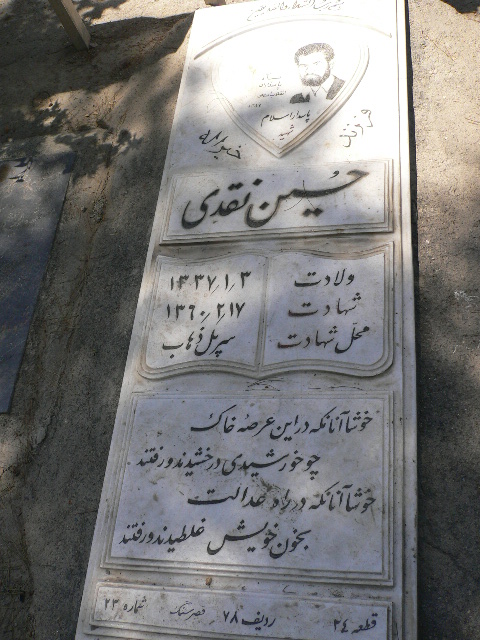 پاسدار اسلام
شهید
فرزند
حسین نقدی
ولادت ۱۳۳۷/۱/۳
شهادت ۱۳۶۰/۲/۱۷
محل شهادت سرپل ذهاب
خوشا آنانکه در این عرصه خاک
چو خورشیدی درخشیدند و رفتند
خوشا آنانکه در راه عدالت
بخون خویش غلطیدند و رفتند
قطعه ۲۴ ردیف ۷۸ شماره ۲۳